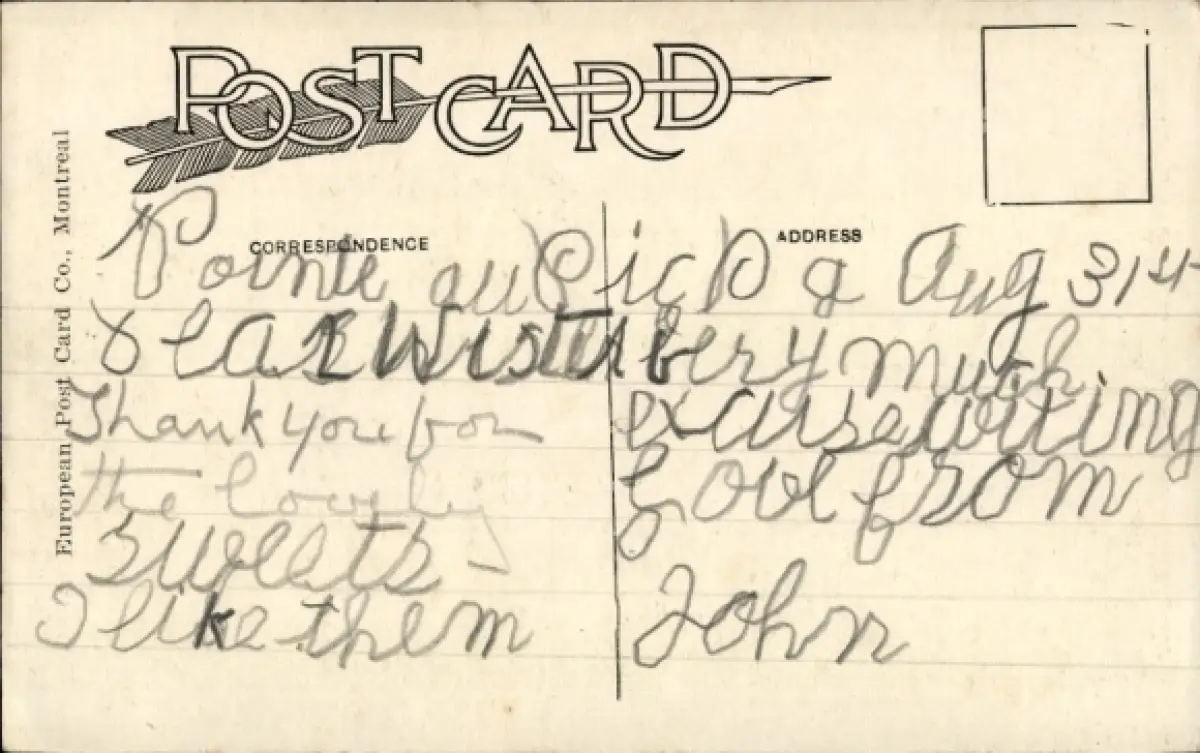 POST CARD
CORRESPONDENCE
ADDRESS
European Post Card Co., Montreal
Pointe au Pic P Q Aug 31st
Dear Wister
Thank you for
the lovely
sweets –
I like them
very much
excuse writing
Love from
John